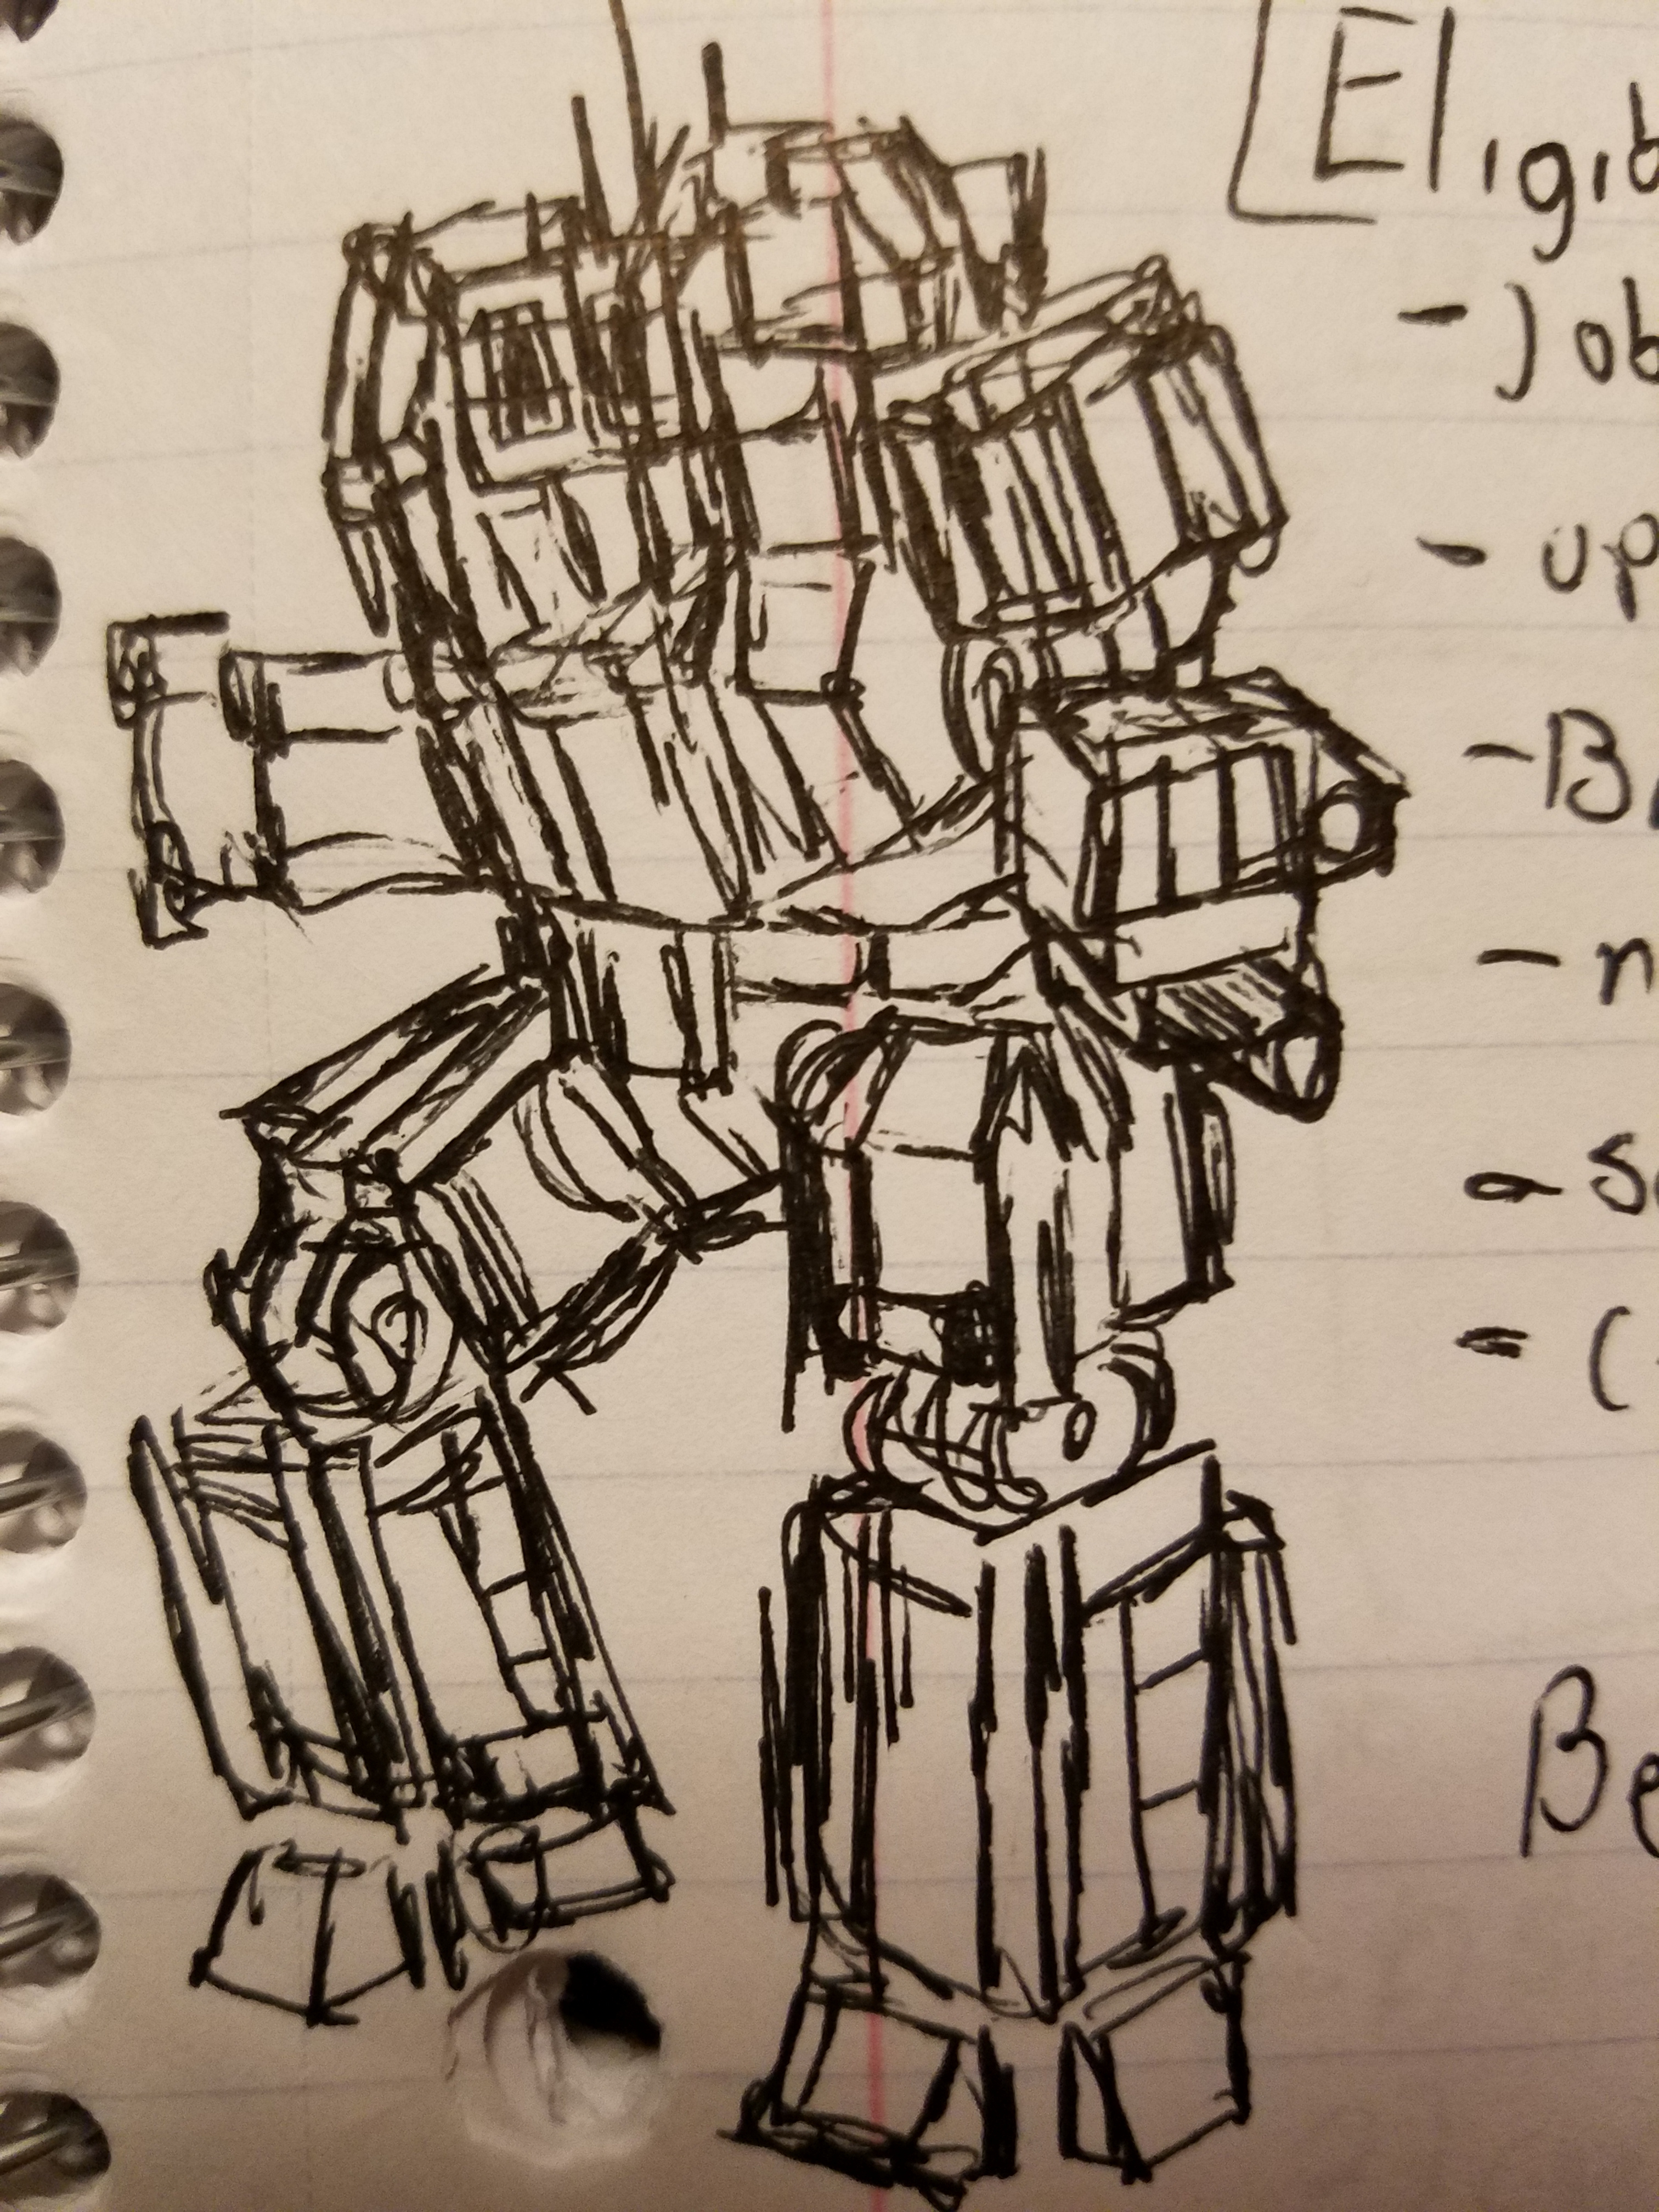 Eligib
- job
- up
- B
- n
- s
= (
Be